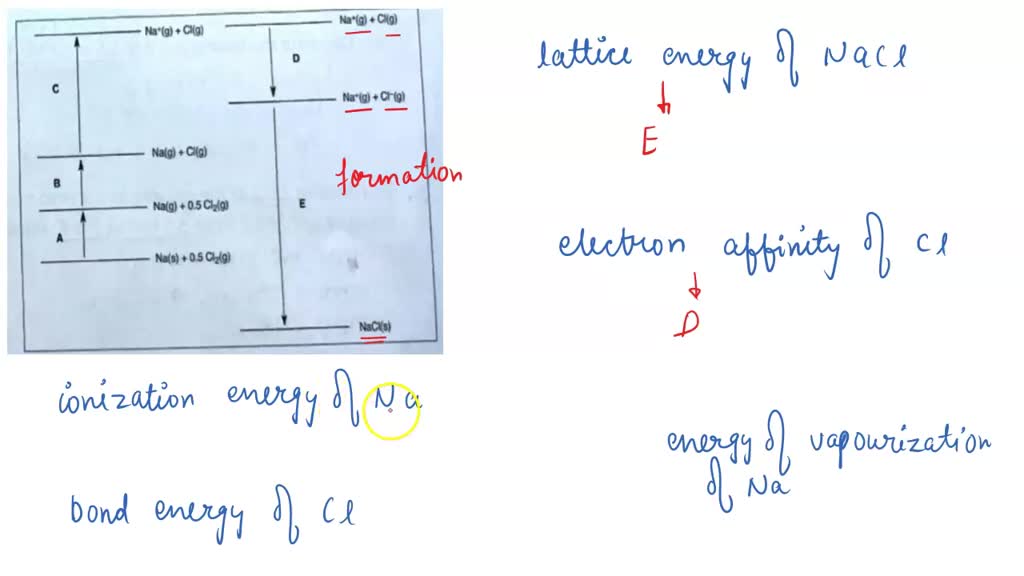 Na⁺(g) + Cl(g)
Na⁺(g) + Cl(g)
D
C
Na⁺(g) + Cl⁻(g)
Na(g) + Cl(g)
B
E
Na(g) + 0.5 Cl₂(g)
A
Na(s) + 0.5 Cl₂(g)
NaCl(s)
formation
lattice energy of NaCl
E
electron affinity of Cl
D
ionization energy of Na
energy of vapourization
of Na
bond energy of Cl